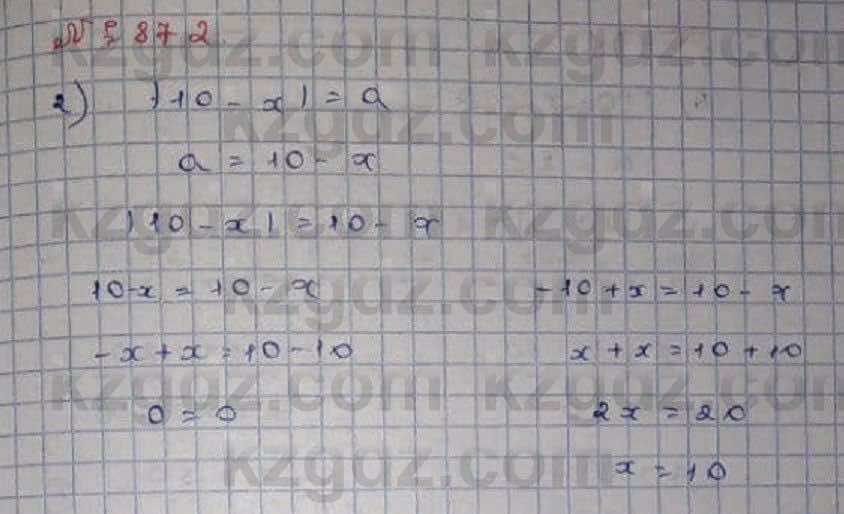 № 872.
2) |10 - x| = a
a = 10 - x
|10 - x| = 10 - x
10 - x = 10 - x    - 10 + x = 10 - x
- x + x = 10 - 10    x + x = 10 + 10
0 = 0    2x = 20
x = 10
kzgdz.com kzgdz.com
kzgdz.com
kzgdz.com kzgdz.com
kzgdz.com
kzgdz.com kzgdz.com
kzgdz.com